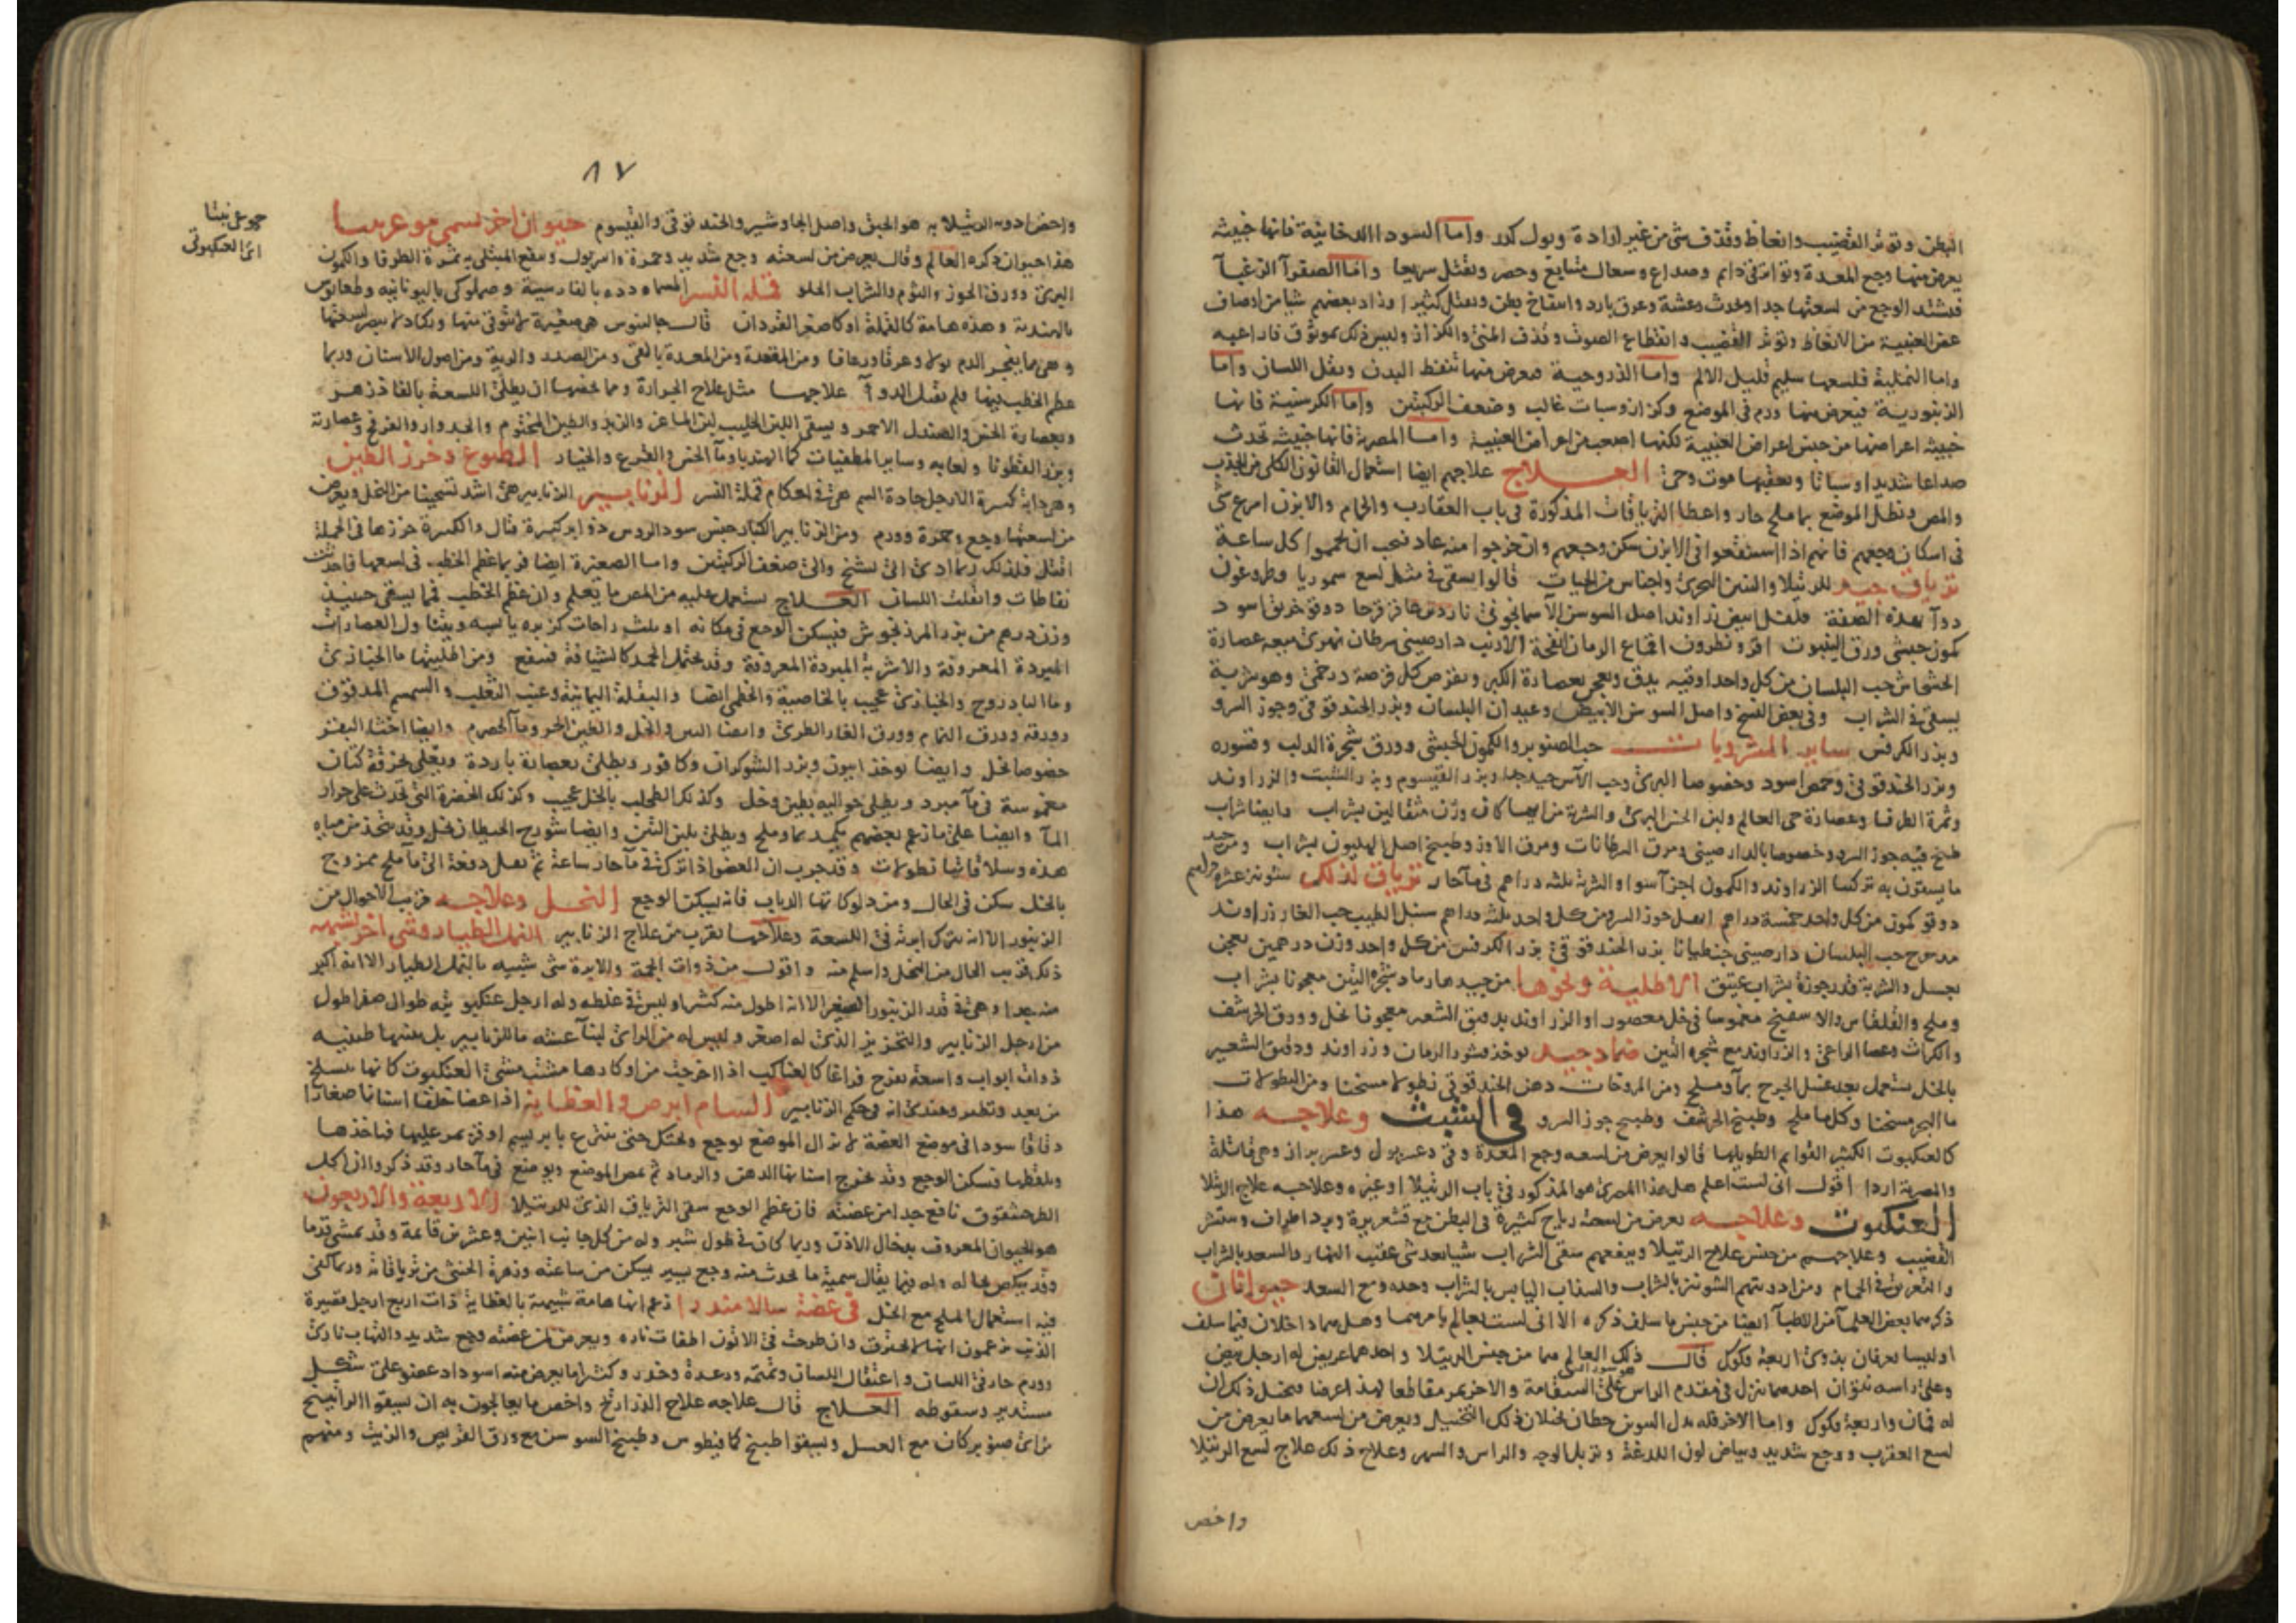 البطن وتوتر القضيب وانعاظ وقذف شئ من غير ارادة وبول كدر واما السودا الدخانية فانها خبيثه
يعرض منها وجع المعدة وتواتر قئ دايم وصداع وسعال متتابع وحصر وتقتل سريعا واما الصفرآ الزغبآ
فيشتد الوجع من لسعتها جدا وتحدث رعشة وعرق بارد وانتفاخ بطن وتقتل كثيرا وزاد بعضهم شيا من اوصاف
العنبية من الانعاظ وتوتر القضيب وانقطاع الصوت وقذف المنى والكزاز وليس ذلك بموثوق
واما النملية فلسعها سليم قليل الالم واما الذروحية فيعرض منها تنفط البدن وثقل اللسان واما
الزنبورية فيعرض منها ورم فى الموضع وكزاز وسبات غالب وضعف الركبتين واما الكرسنية فانها
خبيثه اعراضها من جنس اعراض العنبية لكنها اصعب من اعراض العنبية واما المصرية فانها خبيثه تحدث
صداعا شديدا وسباتا ويعقبها موت وحى العلاج علاجهم ايضا استعمال القانون الكلى من الجذب
والمص ونطل الموضع بما ملح حار واعطا الترياقات المذكورة فى باب العقارب والحمام والابزن امرع شئ
فى اسكان وجعهم فانهم اذا استنقعوا فى الابزن سكن وجعهم وان خرجوا منه عاد فيجب ان يحموا كل ساعة
ترياق جيد للرتيلا والتنين البحرى واجناس من الحيات قالوا يسقى فى مثل لسع سموريا وطروغون
دوآ بهذه الصفة فلفل ابيض زراوند اصل السوسن الآسمانجونى ناردين عاقرقرحا دوقو خربق اسود
كمون حبشى ورق الينبوت نطرون اقماع الرمان انفحة الارنب دارصينى سرطان نهرى ميعه عصارة
الخشخاش حب البلسان من كل واحد اوقيه يدق ويعجن بعصارة الكبر ويقرص كل قرصة درخمى وهو شربة
يسقى فى الشراب وفى بعض النسخ واصل السوسن الابيض وعيدان البلسان وبزر الحندقوقى وجوز السرو
وبزر الكرفس ساير المشروبات حب الصنوبر والكمون الحبشى وورق شجرة الدلب وقشوره
وبزر الحندقوقى وحمص اسود وخصوصا البرى وحب الآس جيد جدا وبزر القيسوم وبزر الشبت والزراوند
وثمرة الطرفا وعصارة حى العالم ولبن الخس البرى والشربة من ايها كان وزن مثقالين بشراب وايضا شراب
طبخ فيه جوز السرو وخصوصا بالدارصينى ومرق السرطانات ومرق الاوز وطبيخ اصل الهليون بشراب ومن جيد
ما يسقون به تركيبا الزراوند والكمون اجزآ سوا والشربة ثلثه دراهم فى مآ حار ترياق لذلك شونيز عشره دراهم
دوقو كمون من كل واحد خمسة دراهم ابهل جوز السرو من كل واحد ثلثه دراهم سنبل الطيب حب الغار زراوند
مدحرج حب البلسان دارصينى جنطيانا بزر الحندقوقى بزر الكرفس من كل واحد وزن درهمين يعجن
بعسل والشربة قدر جوزة بشراب عتيق الاطلية ونحوها من جيدها رماد شجرة التين معجونا بشراب
وملح والقلقاس والاسفنج مغموسا فى خل معصور او الزراوند بدقيق الشعير معجونا بخل وورق الحرشف
والكراث وعصا الراعى والزراوند مع شجره التين ضماد جيد يوخذ قشور الرمان وزراوند ودقيق الشعير
بالخل يستعمل بعد غسل الجرح بمآ وملح ومن المروخات دهن الحندقوقى نطولا مسخنا ومن النطولات
ما البحر مسخنا وكل ما ملح وطبيخ الحرشف وطبيخ جوز السرو فى الشبث وعلاجه هذا
كالعنكبوت الكثير القوايم الطويلها قالوا يعرض من لسعه وجع المعدة وقئ وعسر بول وعسر براز وهى قاتلة
والمصرية اردا اقول انى لست اعلم هل هذا المصرى هو المذكور فى باب الرتيلا او غيره وعلاجه علاج الرتيلا
العنكبوت وعلاجه يعرض من لسعته رياح كثيرة فى البطن مع قشعريرة وبرد اطراف وينتشر
القضيب وعلاجهم من جنس علاج الرتيلا وينفعهم سقى الشراب شيا بعد شئ عقيب والسعد بالشراب
والتعريق فى الحمام ومن ادويتهم الشونيز بالشراب والسذاب اليابس بالشراب وحده ومع السعد حيوانان
ذكرهما بعض العلمآ من الاطبآ ايضا من جنس ما سلف ذكره الا انى لست بعالم بامرهما وهل هما داخلان فيما سلف
او ليسا يعرفان بذوى اربعة فكوك قال ذلك العالم هما من جنس الرتيلا واحدهما عريض له ارجل بيض
وعلى راسه نتوان احدهما ينزل فى مقدم الراس على استقامة والاخر يمر مقاطعا لهذا عرضا فيخيل ذلك ان
له فمان واربعة فكوك واما الاخر فله بدل النتوين خطان يخيلان ذلك التخييل ويعرض من لسعهما ما يعرض من
لسع العقرب ووجع شديد وبياض لون اللدغة وتربل الوجه والراس والسهر وعلاج ذلك علاج لسع الرتيلا
واخص
٨٧
واخص ادويه الرتيلا به هو الخبث واصل الجاوشير والحندقوقى والقيسوم حيوان اخر يسمى موغرنيسا
هذا حيوان ذكره العالم وقال يعرض من لسعته وجع شديد وحمرة واسر بول وينفع المبتلى به ثمرة الطرفا والكمون
البرى وورق الجوز والثوم والشراب الحلو قملة النسر المسماه دده بالفارسية وصملوكى باليونانيه وطعانوس
بالهندية وهذه هامة كالقملة او كاصغر القردان قال جالينوس هى صغيرة لا يتوقى منها ويكاد لا يبصر لسعتها
وهى ما ينفجر الدم بولا وعرقا ورعافا ومن المقعدة ومن المعدة بالقئ ومن الصدر والرية ومن اصول الاسنان وربما
عظم الخطب فيها فلم يقبل الدوآ علاجها مثل علاج الجرارة ومما يخصها ان يطلى اللسعة بالفاذزهر
وبعصارة الخس والصندل الاحمر ويسقى اللبن الحليب لبن الماعز والزبد والطين المختوم والجدوار والفرفخ وعصارته
وبزر القطونا ولعابه وساير المطفيات كما الهندبا ومآ الخس والقرع والخيار الطبوع وخرز الطين
وهو دابة كثيرة الارجل حادة السم هى فى احكام قملة النسر الزنابير الزنابير هى اشد تسخينا من النحل ويعرض
من لسعتها وجع وحمرة وورم ومن الزنابير الكبار جنس سود الروس ذوا ابر كثيرة قتال والكبيرة خرزها فى الجملة
اقتل فلذلك ربما ادى الى تشنج والى ضعف الركبتين واما الصغيرة ايضا فربما عظم الخطب فى لسعها فاحدثت
نفاطات واثقلت اللسان العلاج يستعمل عليه من المص ما يعلم وان عظم الخطب فمما يسقى حينيذ
وزن درهم من بزر المرزنجوش فيسكن الوجع فى مكانه او ثلث راحات كزبره يابسه ويتناول العصارات
المبردة المعروفة والاشربة المبردة المعروفة وقد يحتمل الجمد كالشيافة فينفع ومن اطليتها ما الخبازى
وما الباذروج والخبازى عجيب بالخاصية والخطمى ايضا والبقلة اليمانية وعنب الثعلب والسمسم المدقوق
وورقه وورق النمام وورق الغار الطرى وايضا الدبس والخل والطين الحر ومآ الحصرم وايضا اخثا البقر
خصوصا بخل وايضا يوخذ افيون وبزر الشوكران وكافور ويطلى بعصارة باردة ويغطى بخرقة كتان
مغموسة فى مآ مبرد ويطلى حواليه بطين وخل وكذلك الطحلب بالخل عجيب وكذلك الخضرة التى تحدث على جرار
المآ وايضا على ما زعم بعضهم يكمد بما وملح ويطلى بلبن التين وايضا شورج الحيطان بخل وقد يتخذ من مياه
هذه وسلاقاتها نطولات وقد جرب ان العضو اذا ترك فى مآ حار ساعة ثم نقل دفعة الى مآ ملح ممزوج
بالخل سكن فى الحال ومن دلوكاتها الذباب فانه يسكن الوجع النحل وعلاجه قريب الاحوال من
الزنبور الا انه يترك ابرته فى اللسعة وعلاجها يقرب من علاج الزنابير النمل الطيار وشئ اخر يشبهه
ذلك قريب الحال من النحل واسلم منه واقول من ذوات الحمة والابرة شئ شبيه بالنمل الطيار الا انه اكبر
منه جدا وهى فى قدر الزنبور الصغير الا انه اطول منه كثيرا وليس فى غلظه وله ارجل عنكبوتيه طوال صفر اطول
من ارجل الزنابير والتحزيز الذى له اصغر وليس له من الراى لبنآ عشه ما للزنابير بل يعشها طينيه
ذوات ابواب واسعة يفرخ فراخا كالعناكب اذا اخرجت من اوكارها مشت مشى العنكبوت كانها تنسلخ
من بعد وتطير وعندى انه فى حكم الزنابير السام ابرص والعظاية اذا عضا خلفا اسنانا صغارا
دقاقا سودا فى موضع العضة لا تزال الموضع توجع وتحتكك حتى تنتزع بابريسم او قز يمر عليها فتاخذها
وبلقطها فيسكن الوجع وقد يخرج اسنانها الدهن والرماد ثم يمص الموضع ويوضع فى مآ حار وقد ذكروا ان اكل
الطرحشقوق نافع جدا من عضته فان عظم الوجع سقى الترياق الذى للرتيلا الاربعة والاربعون
هو الحيوان المعروف بدخال الاذن وربما كان فى طول شبر وله من كل جانب اثنين وعشرين قايمة وقد يمشى قدما
وقد ينكص بحاله وله فيما يقال سمية ما يحدث منه وجع يسير يسكن من ساعته وزهرة الخنثى من ترياقاته وربما كفى
فيه استعمال الملح مع الخل فى عضة سالامندرا زعم انها هامة شبيهة بالعظاية ذات اربع ارجل قصيرة
الذنب يزعمون انها لا تحترق وان طرحت فى الاتون اطفات ناره ويعرض لمن عضته وجع شديد والتهاب نارى
وورم حار فى اللسان واعتقال اللسان وتمتمه ورعدة وخدر وكثيرا ما يعرض منه اسوداد عضو على شكل
مستدير وسقوطه العلاج قال علاجه علاج الذراريح واخص ما يعالجون به ان يسقوا الراتينج
من اى صنوبر كان مع العسل ويسقوا طبيخ كمافيطوس وطبيخ السوسن مع ورق القريص والزيت ومنهم